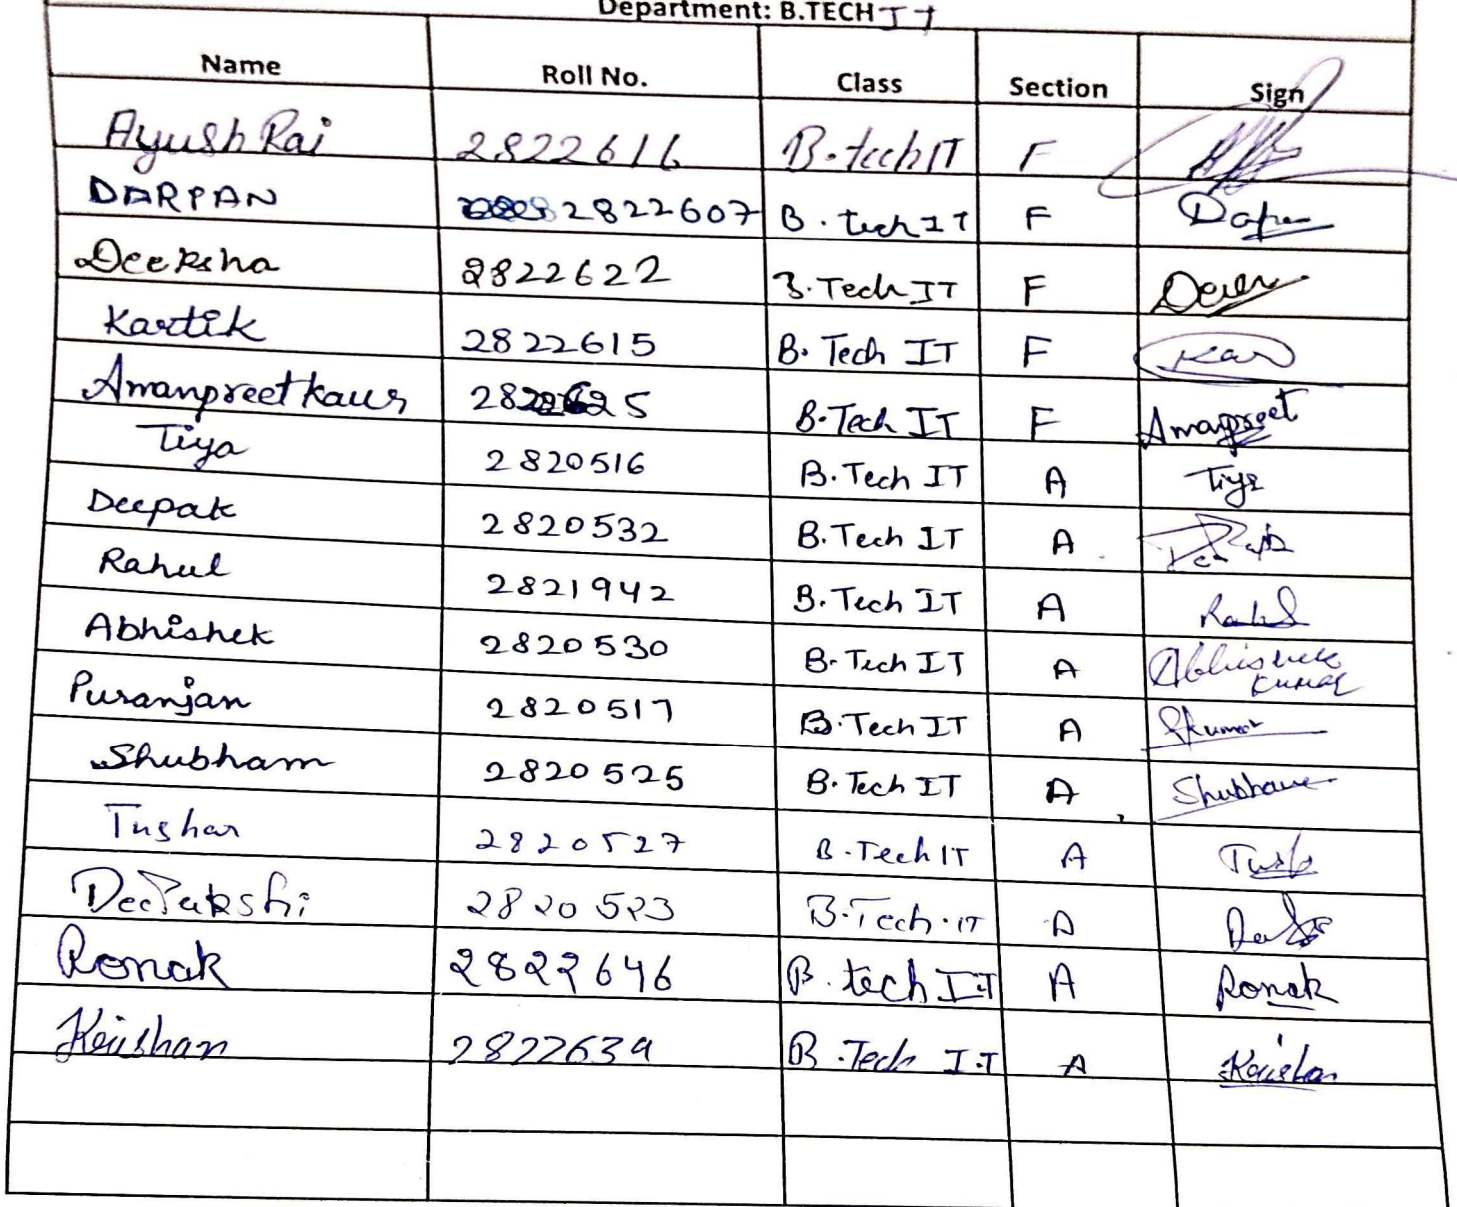 Department: B.TECH IT
Name Roll No. Class Section Sign
Ayush Rai 2822616 B.tech IT F
DARPAN 2822607 B.tech IT F
Deeksha 2822622 B.Tech IT F
Kartik 2822615 B.Tech IT F Kar
Amanpreet kaur 2822625 B.Tech IT F Amanpreet
Tiya 2820516 B.Tech IT A Tiya
Deepak 2820532 B.Tech IT A
Rahul 2821942 B.Tech IT A Rahul
Abhishek 2820530 B.Tech IT A Abhishek Kumar
Puranjan 2820517 B.Tech IT A Pkumar
Shubham 2820525 B.Tech IT A Shubham
Tushar 2820527 B.Tech IT A
Deepakshi 2820523 B.Tech.IT A
Ronak 2822646 B.tech I.T A Ronak
Krishan 2822639 B.Tech I.T A Krishan